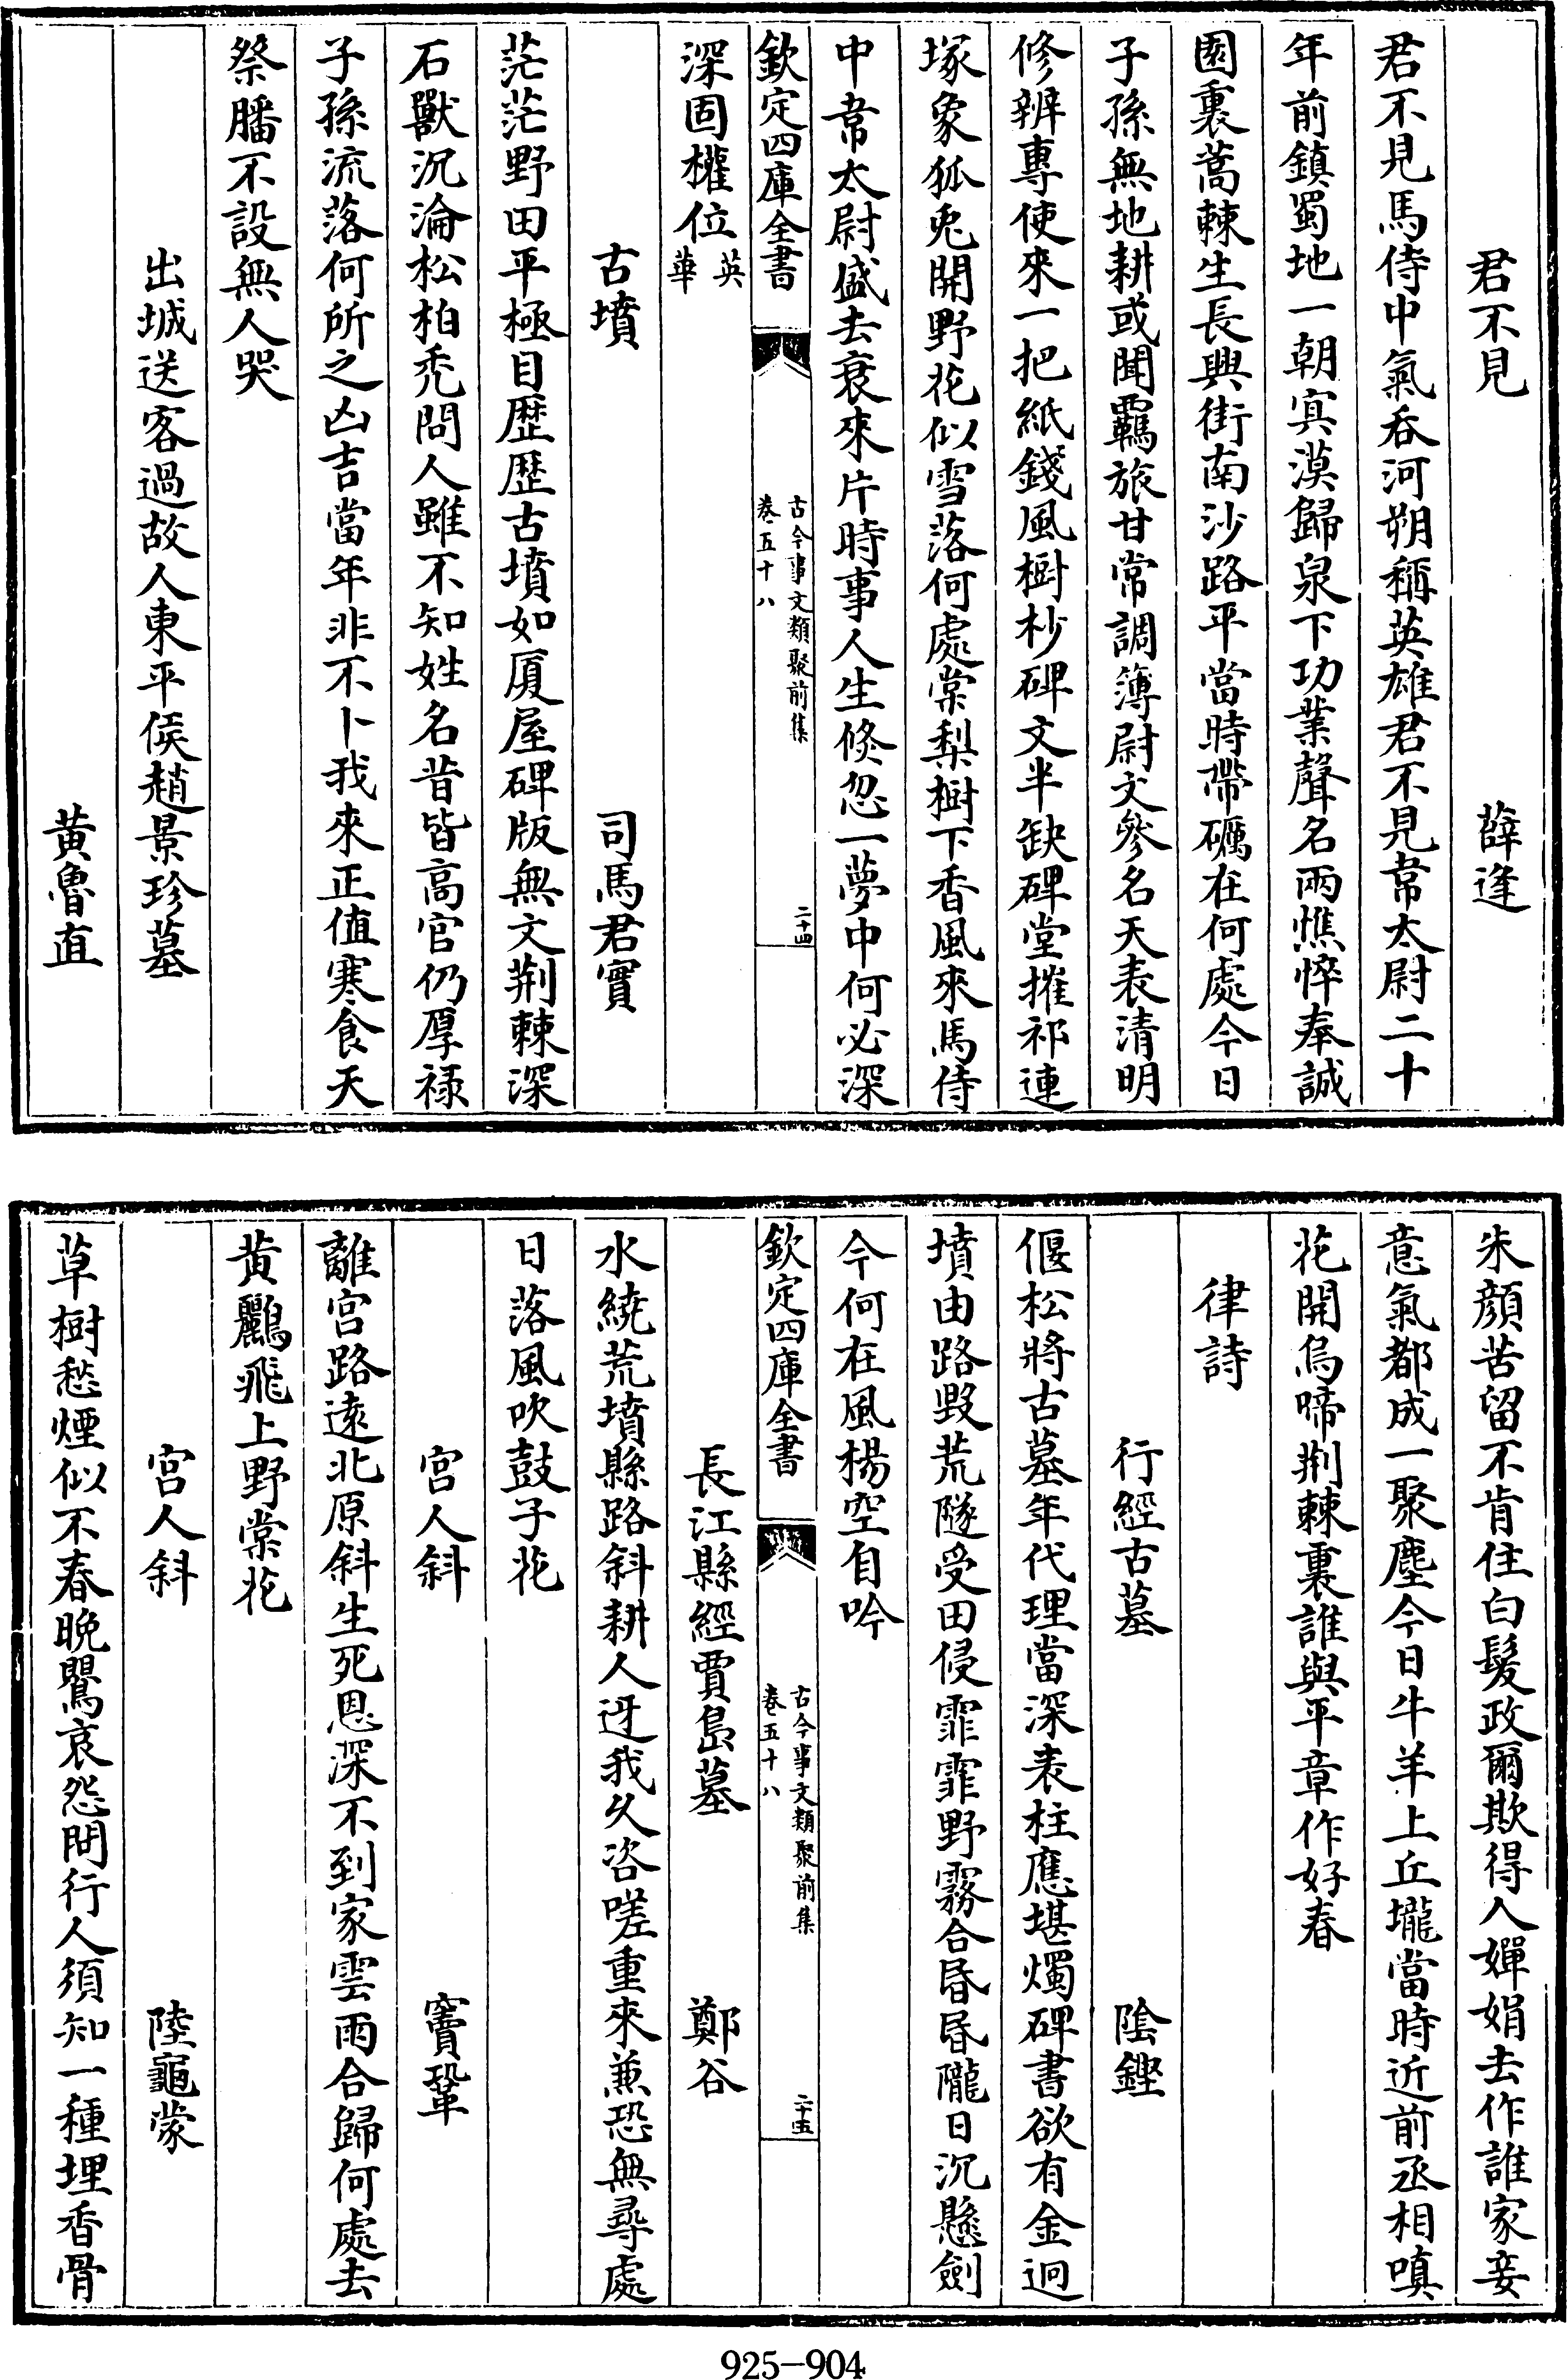 君不見　薛逢
君不見馬侍中氣吞河朔稱英雄君不見韋太尉二十
年前鎮蜀地一朝㝠漠歸泉下功業聲名兩憔悴奉誠
園裏蒿棘生長興街南沙路平當時帶礪在何處今日
子孫無地耕或聞羈旅甘常調簿尉文參名天表清明
修辨專使來一把紙錢風樹杪碑文半缺碑堂摧祁連
塚象狐兎開野花似雪落何處棠梨樹下香風來馬侍
中韋太尉盛去衰來片時事人生倏忽一夢中何必深
欽定四庫全書　古今事文類聚前集　卷五十八　二十四
深固權位英華
古墳　司馬君實
茫茫野田平極目歴歴古墳如厦屋碑版無文荆棘深
石獸沉淪松柏秃問人雖不知姓名昔皆高官仍厚禄
子孫流落何所之凶吉當年非不卜我來正值寒食天
祭膰不設無人哭
出城送客過故人東平侯趙景珍墓
黄魯直
朱顔苦留不肯住白髮政爾欺得人嬋娟去作誰家妾
意氣都成一聚塵今日牛羊上丘壠當時近前丞相嗔
花開鳥啼荆棘裏誰與平章作好春
律詩
行經古墓　陰鏗
偃松將古墓年代理當深表柱應堪燭碑書欲有金迥
墳由路毁荒隧受田侵霏霏野霧合昏昏隴日沉懸劍
今何在風楊空自吟
欽定四庫全書　古今事文類聚前集　卷五十八　二十五
長江縣經賈島墓　鄭谷
水繞荒墳縣路斜耕人迓我久咨嗟重來兼恐無尋處
日落風吹鼓子花
宫人斜　竇鞏
離宫路逺北原斜生死恩深不到家雲雨合歸何處去
黄鸝飛上野棠花
宫人斜　陸龜蒙
草樹愁煙似不春晚鶯哀怨問行人須知一種埋香骨
925-904